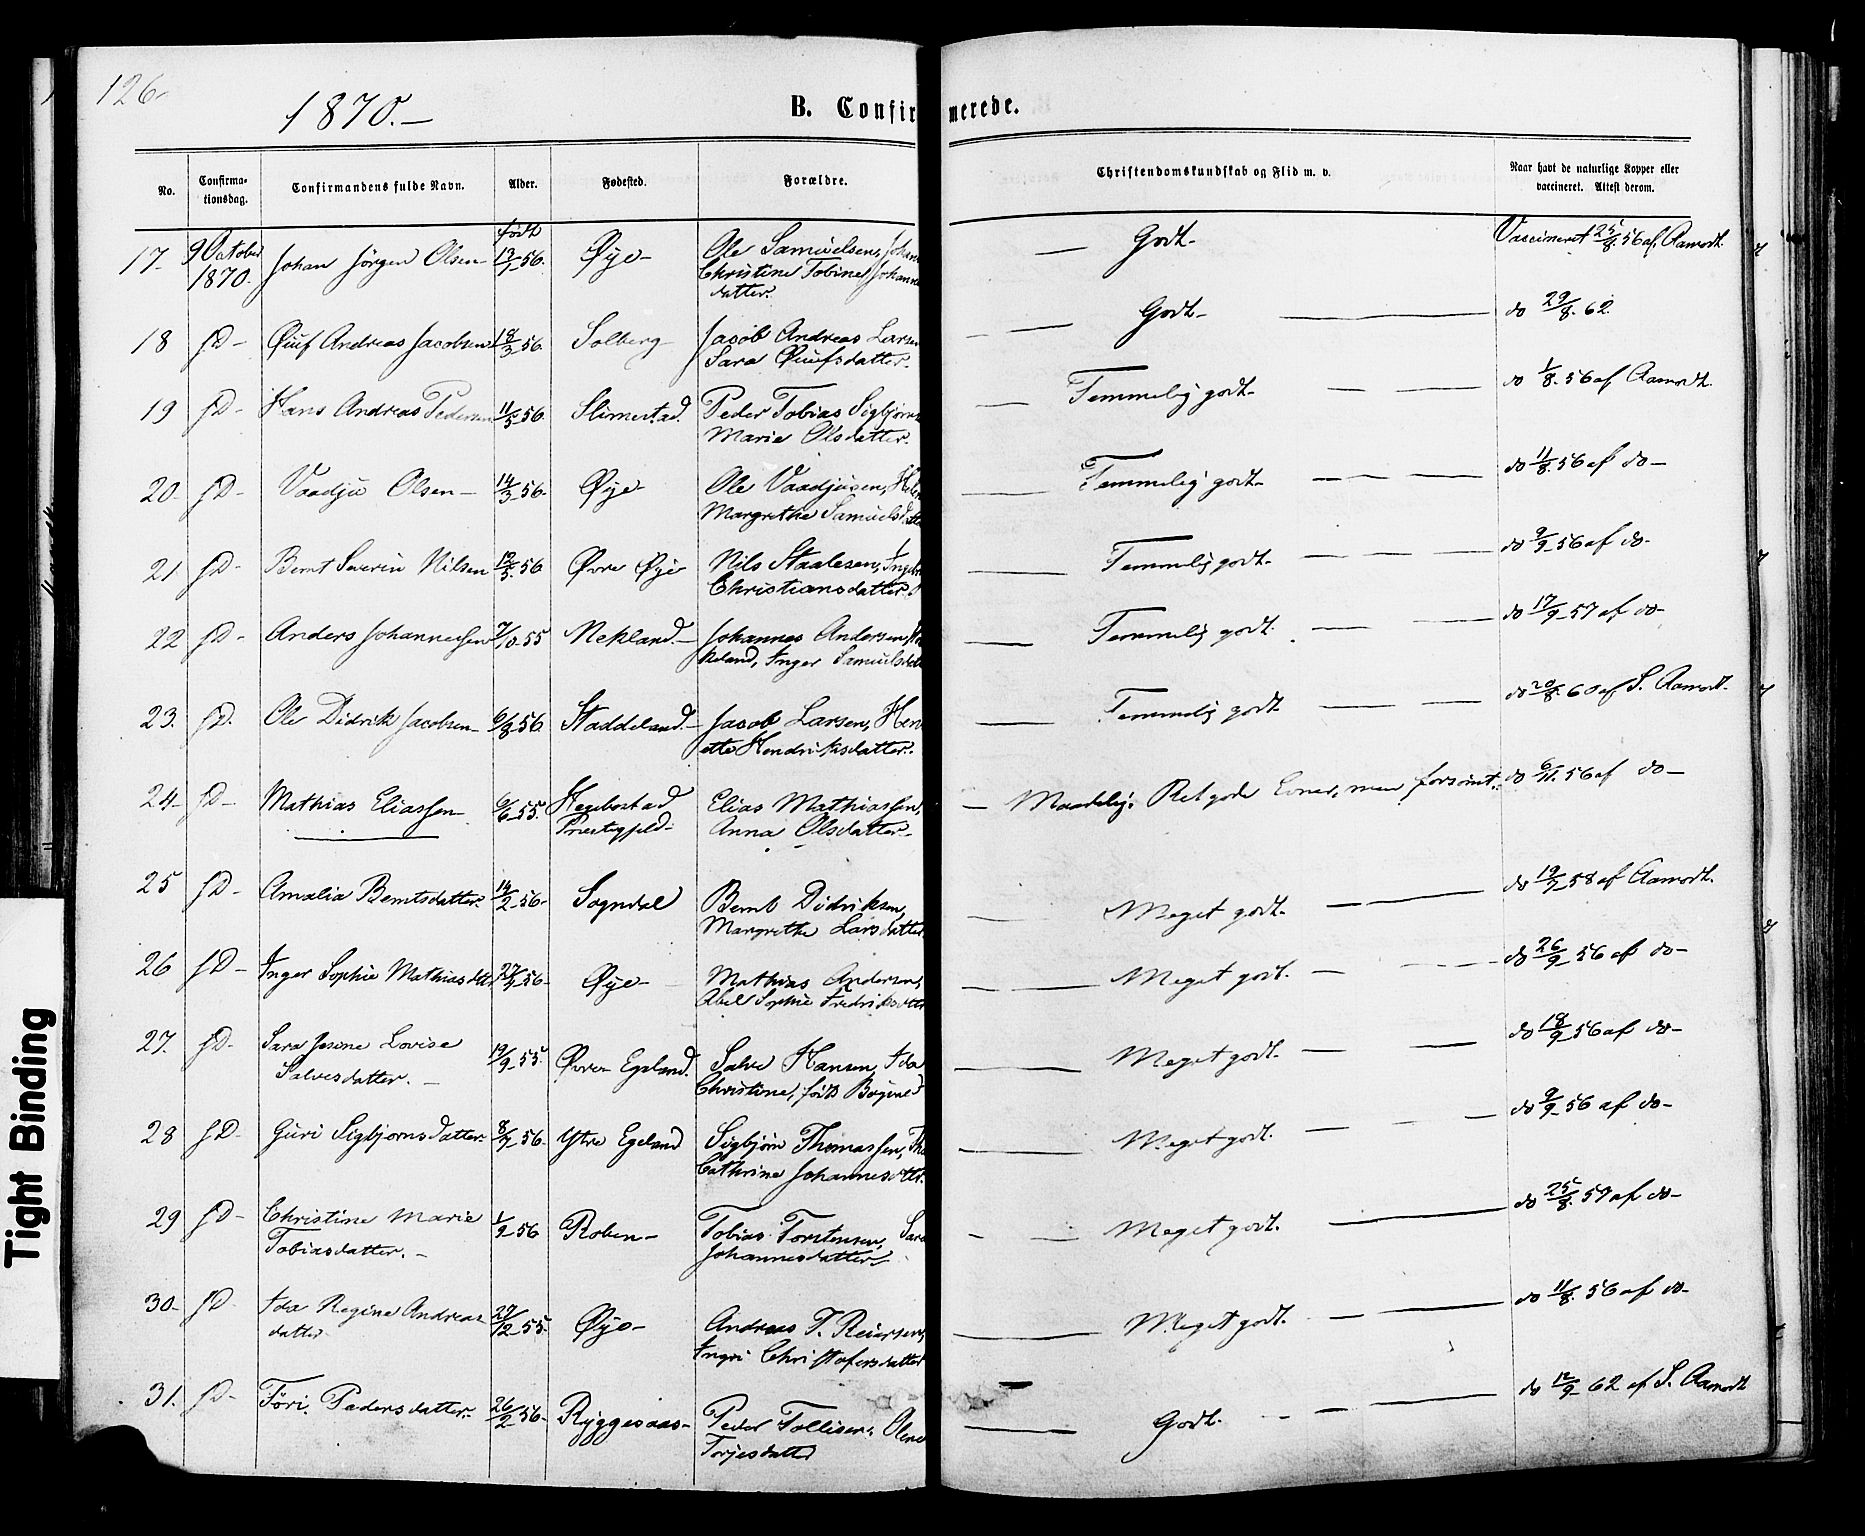 126
1870.–
B. Confirmerede.
No. Confirma-tionsdag. Confirmandens fulde Navn. Alder. Fødested. Forældre. Christendomskundskab og Flid m. v. Naar havt de naturlige Kopper eller vaccineret. Attest derom.
17– 9 October 1870. Johan Jörgen Olsen– født 13/1 56. Øye– Ole Samuelsen, Johan
Christine Tobine Johanne
datter. — Godt– Vaccineret 25/8 56 af Aamodt.
18 fD– Øuf Andreas Jacobsen 18/3 56. Solberg– Jacob Andreas Larsen
Sara Øuufsdatter. — Godt– — do 29/8. 62.
19 fD– Hans Andreas Pedersen 11/5 56. Slimestad. Peder Tobias Sigbjørn
Marie Olsdatter. — Temmelig godt– — do 1/8. 56 af Aamodt.
20– fD– Vaadju Olsen– 14/3 56– Øye– Ole Vaadjusen,
Margrethe Samuelsdatte — Temmelig godt– — do 11/8. 56 af do–
21 fD– Bernt Severin Nilsen 12/5. 56 Øvre Øye Nils Staalesen, Inge
Christiansdatter. — Temmelig godt– — do 9/9 56 af do–
22 fD– Anders Johannessen 7/10 55 Mekland.– Johannes Andersen,
keland, Inger Samuelsdat — Temmelig godt. — do 17/9 57 af do–
23. fD. Ole Didrik Jacobsen– 6/8 56. Staddeland.– Jacob Larsen, Hen
ette Hendriksdatter. — Temmelig godt — do 20/8. 60 af S. Aamodt.
24– fD– Mathias Eliassen– 6/6 55. Hegebostad
Præstegjeld– Elias Mathiassen,
Anna Olsdatter– — Maadelig. Ret gode Evner, men forsømt. do 6/11. 56 af do–
25 fD– Amalia Berntsdatter. 14/2 56– Sogndal Bernt Didriksen,
Margrethe Larsdatter — Meget godt. — do 19/7 58 af Aamodt.
26 fD– Inger Sophie Mathiasdttr 27/4 56– Øye– Mathias Andersen,
Abel Sophie Fredriksdttr — Meget godt. — do 26/9 56 af do–
27. fD– Sara Josine Lovise
Salvesdatter. – 19/9 55. Øvre Egeland. Salve Hansen, Ida
Christine, født — Meget godt. — do 18/9 56 af do–
28 fD– Guri Sigbjornsdatter. 8/7 56– Ytre Egeland Sigbjörn Thomassen,
Cathrine Johannesdttr. — Meget godt. — do 9/9 56 af do–
29 fD– Christine Marie
Tobiasdatter. – 1/9 56 Roben– Tobias Torstensen, Sara
Johannesdatter — Meget godt. — do 25/8. 57 af do–
30– fD– Ida Regine Andreas
datter 27/12 55. Øye– Andreas T. Reiersen,
Ingri Christofersdatter — Meget godt. — do 11/8. 56 af do–
31. fD– Töri Pedersdatter. 26/2 56– Ryggesaas– Peder Tollisen, Olene
Torjesdatter — Godt. — do 12/9 62 af S. Aamodt
Tight Binding